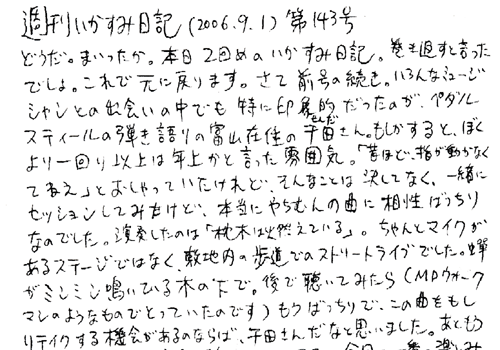 週刊いかすみ日記(2006.9.1)第143号
どうだ。まいったか。本日2回めのいかすみ日記。巻き返すと言った
でしょ。これで元に戻ります。さて前号の続き。いろんなミュージ
シャンとの出会いの中でも特に印象的だったのが、ペダル
スティールの弾き語りの富山在住の千田さん。もしかすると、ぼく
より一回り以上は年上かと言った雰囲気。「昔ほど、指が動かなく
てねえ」とおしゃっていたけれど、そんなことは決してなく、一緒に
セッションしてみたけど、本当にやちむんの曲に相性ばっちり
なのでした。演奏したのは「枕木は燃えている」。ちゃんとマイクが
あるステージではなく、敷地内の歩道でのストリートライブでした。蝉
がミンミン鳴いている木の下で。後で聴いてみたら(MDウォーク
マンのようなものでとっていたのです)もうばっちりで、この曲をもし
リテイクする機会があるのならば、千田さんだなと思いました。あともう